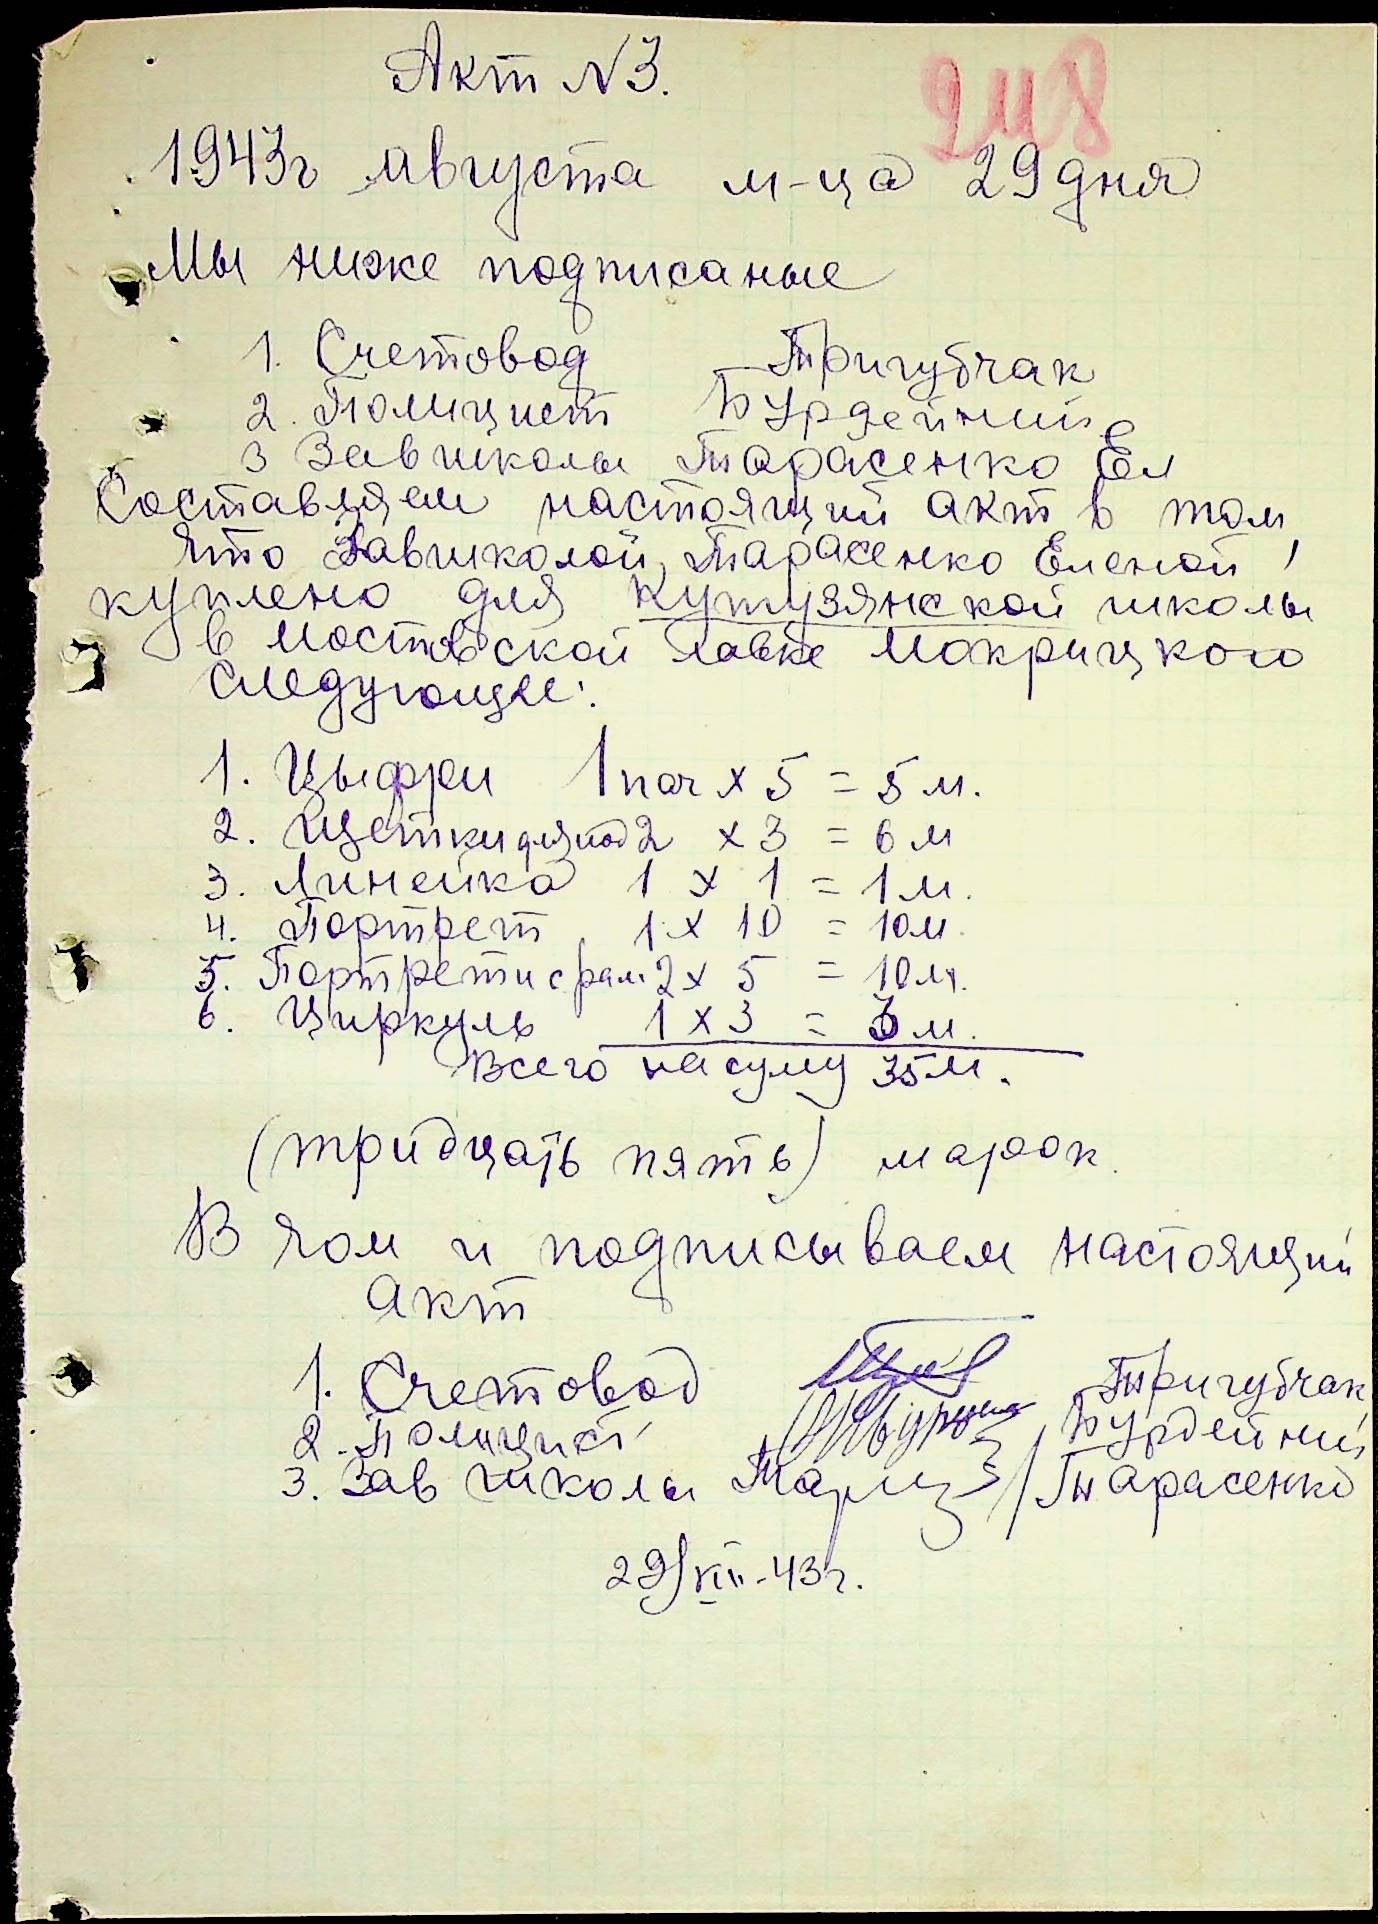 Акт N3.
1943г августа м-ца 29 дня
Мы ниже подписаные
1. Счетовод Тригубчак
2. Полицист Бурдейний
3 Завшколы Тарасенко Ел
Составляем настоящий акт в том,
что Завшколой, Тарасенко Еленой,
куплено для Кутузянской школы
в Мостовской лавке Мокрицкого
следующее:
1. Цыфри 1 пач x 5 = 5 м.
2. Щетки для под 2 x 3 = 6 м
3. Линейка 1 x 1 = 1 м.
4. Портрет 1 x 10 = 10 м.
5. Портрети с рам 2 x 5 = 10 м.
6. Циркуль 1 x 3 = 3 м.
Всего на суму 35 м.
(тридцать пять) марок.
В чом и подписываем настоящий
акт
1. Счетовод Тригубчак
2. Полицист Бурдейний
3. Зав школы /Тарасенко
29/VIII-43г.